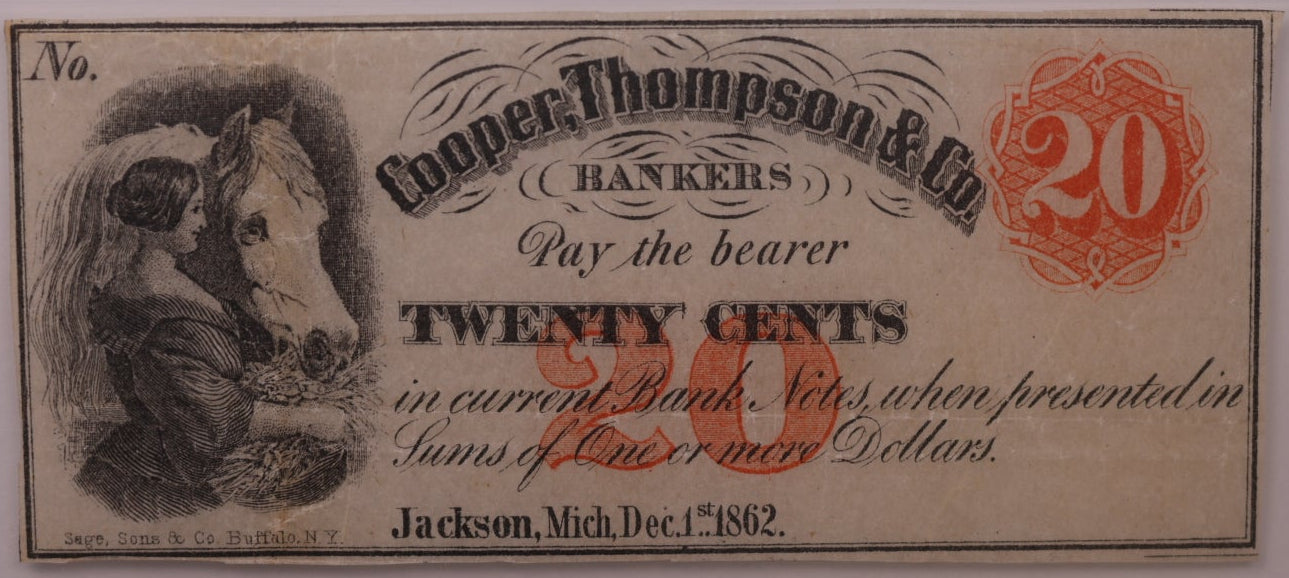 No.
Cooper, Thompson & Co.
BANKERS
20
Pay the bearer
TWENTY CENTS
20
in current Bank Notes, when presented in
Sums of One or more Dollars.
Jackson, Mich, Dec. 1st 1862.
Sage, Sons & Co. Buffalo, N.Y.